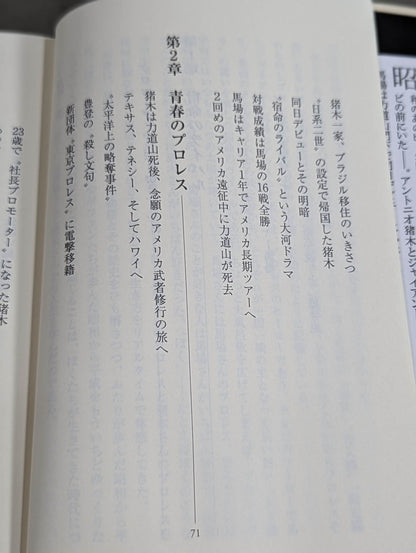 猪木一家、ブラジル移住のいきさつ
〝日系二世〟の設定で帰国した猪木
同日デビューとその明暗
〝宿命のライバル〟という大河ドラマ
対戦成績は馬場の16戦全勝
馬場はキャリア1年でアメリカ長期ツアーへ
2回めのアメリカ遠征中に力道山が死去
第2章 青春のプロレス
71
猪木は力道山死後、念願のアメリカ武者修行の旅へ
テキサス、テネシー、そしてハワイへ
〝太平洋上の略奪事件〟
豊登の〝殺し文句〟
新団体〝東京プロレス〟に電撃移籍
23歳で〝社長プロモーター〟になった猪木